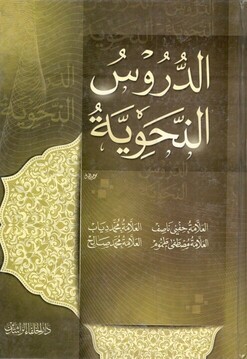 الدُّرُوسُ
النَّحَوِيَّةُ
العلامة حفني ناصف العلامة محمد دياب
العلامة مصطفى طموم العلامة محمد صالح
دار الخلفاء الراشدين